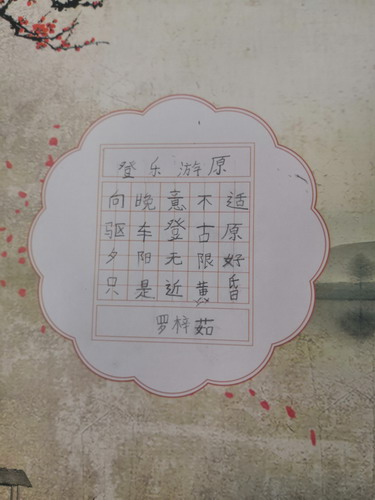 登乐游原
向晚意不适
驱车登古原
夕阳无限好
只是近黄昏
罗梓茹